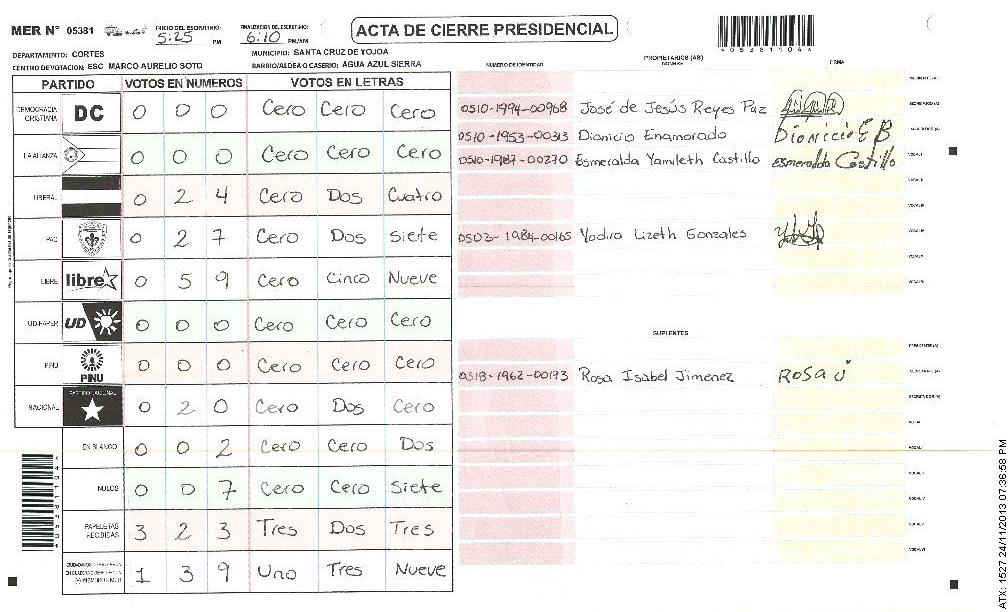 MER Nº 05381 INICIO DEL ESCRUTINIO: 5:25 PM FINALIZACION DEL ESCRUTINIO: 6:10 PM/AM ACTA DE CIERRE PRESIDENCIAL
DEPARTAMENTO: CORTES MUNICIPIO: SANTA CRUZ DE YOJOA
CENTRO DE VOTACION: ESC MARCO AURELIO SOTO BARRIO/ALDEA O CASERIO: AGUA AZUL SIERRA
PARTIDO VOTOS EN NUMEROS VOTOS EN LETRAS
DEMOCRACIA CRISTIANA DC 0 0 0 Cero Cero Cero
LA ALIANZA 0 0 0 Cero Cero Cero
LIBERAL 0 2 4 Cero Dos Cuatro
PAC 0 2 7 Cero Dos Siete
LIBRE libre 0 5 9 Cero Cinco Nueve
UD-FAPER UD 0 0 0 Cero Cero Cero
PINU PINU 0 0 0 Cero Cero Cero
NACIONAL PARTIDO NACIONAL 0 2 0 Cero Dos Cero
EN BLANCO 0 0 2 Cero Cero Dos
NULOS 0 0 7 Cero Cero Siete
PAPELETAS RECIBIDAS 3 2 3 Tres Dos Tres
1 3 9 Uno Tres Nueve
NUMERO DE IDENTIDAD PROPIETARIOS (AS) NOMBRE FIRMA
0510-1994-00968 José de Jesús Reyes Paz
0510-1953-00313 Dionicio Enamorado Dionicio E B
0510-1987-00270 Esmeralda Yamileth Castillo Esmeralda Castillo
0502-1984-00165 Yadira Lizeth Gonzales
SUPLENTES
0318-1962-00173 Rosa Isabel Jimenez Rosa J
ATX: 1527 24/11/2013 07:36:58 PM